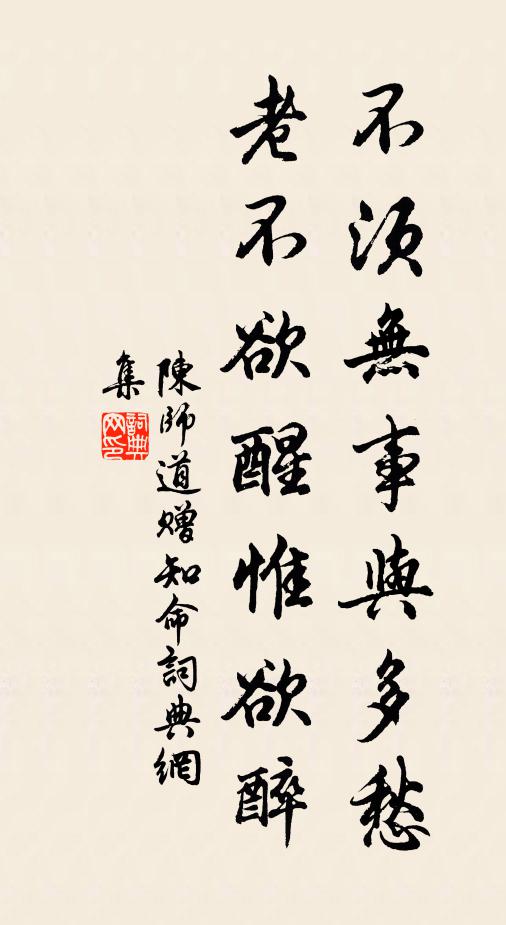 不須無事與多愁
老不欲醒惟欲醉
陳師道贈知命詞典網
集
詞典網印